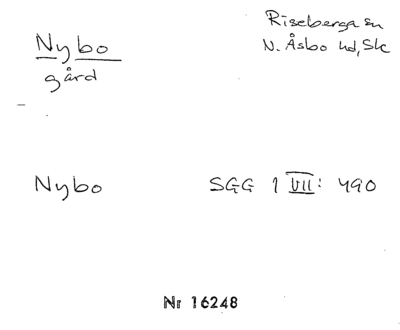 Nybo
gård
Riseberga sn
N. Åsbo hd, Sk
Nybo SGG 1 VII: 490
Nr 16248